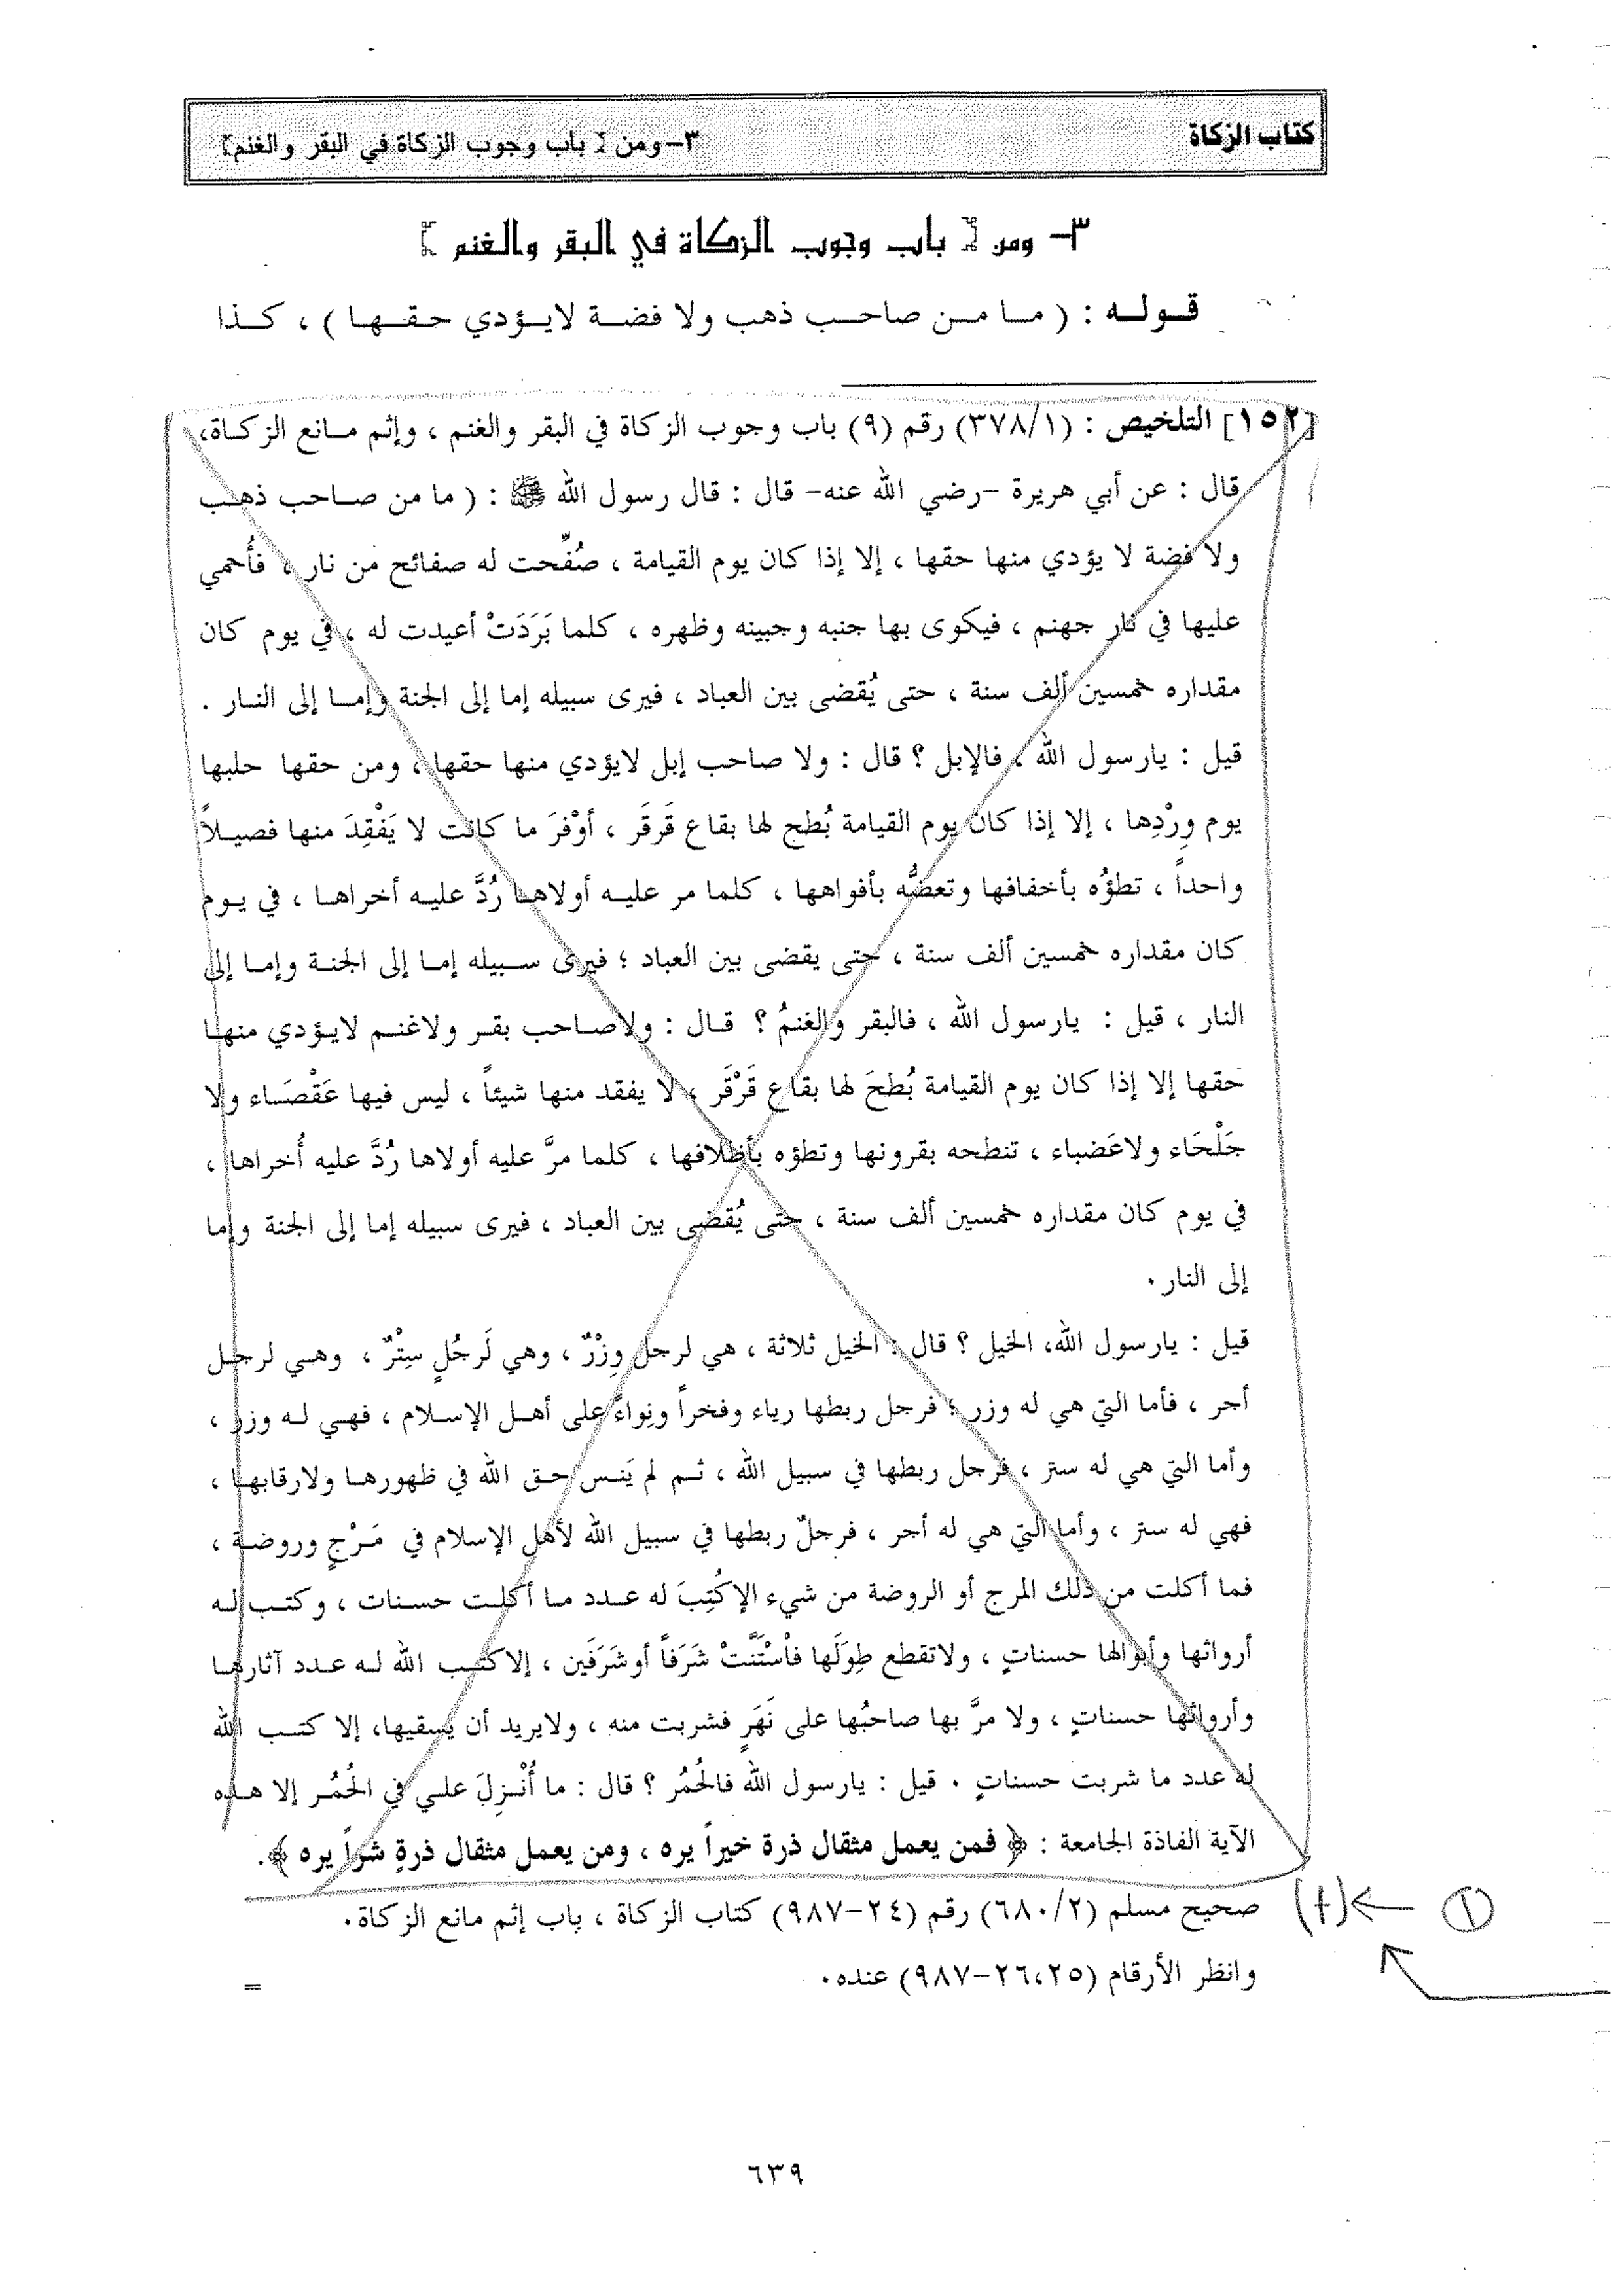 كتاب الزكاة
٣-ومن [ باب وجوب الزكاة في البقر والغنم]
٣- ومن [ باب وجوب الزكاة في البقر والغنم ]
قوله : ( ما من صاحب ذهب ولا فضة لايؤدي حقها ) ، كذا
[١٥٢] التلخيص : (٣٧٨/١) رقم (٩) باب وجوب الزكاة في البقر والغنم ، وإثم مانع الزكاة،
قال : عن أبي هريرة -رضي الله عنه- قال : قال رسول الله ﷺ : ( ما من صاحب ذهب
ولا فضة لا يؤدي منها حقها ، إلا إذا كان يوم القيامة ، صُفِّحت له صفائح من نار ، فأُحمي
عليها في نار جهنم ، فيكوى بها جنبه وجبينه وظهره ، كلما بَرَدَتْ أعيدت له ، في يوم كان
مقداره خمسين ألف سنة ، حتى يُقضى بين العباد ، فيرى سبيله إما إلى الجنة وإما إلى النار .
قيل : يارسول الله ، فالإبل ؟ قال : ولا صاحب إبل لايؤدي منها حقها ، ومن حقها حلبها
يوم وِرْدِها ، إلا إذا كان يوم القيامة بُطح لها بقاع قَرقَر ، أوْفرَ ما كانت لا يَفْقِدَ منها فصيلاً
واحداً ، تطؤُه بأخفافها وتعضُّه بأفواهها ، كلما مر عليه أولاها رُدَّ عليه أخراها ، في يوم
كان مقداره خمسين ألف سنة ، حتى يقضى بين العباد ؛ فيرى سبيله إما إلى الجنة وإما إلى
النار ، قيل : يارسول الله ، فالبقر والغنمُ ؟ قال : ولاصاحب بقر ولاغنم لايؤدي منها
حقها إلا إذا كان يوم القيامة بُطحَ لها بقاع قَرْقَر ، لا يفقد منها شيئاً ، ليس فيها عَقْصَاء ولا
جَلْحَاء ولاعَضباء ، تنطحه بقرونها وتطؤه بأظلافها ، كلما مرَّ عليه أولاها رُدَّ عليه أُخراها ،
في يوم كان مقداره خمسين ألف سنة ، حتى يُقضى بين العباد ، فيرى سبيله إما إلى الجنة وإما
إلى النار .
قيل : يارسول الله، الخيل ؟ قال : الخيل ثلاثة ، هي لرجل وِزْرٌ ، وهي لَرجُلٍ سِتْرٌ ، وهي لرجل
أجر ، فأما التي هي له وزر ؛ فرجل ربطها رياء وفخراً ونِواءً على أهل الإسلام ، فهي له وزر ،
وأما التي هي له ستر ، فرجل ربطها في سبيل الله ، ثم لم يَنس حق الله في ظهورها ولارقابها ،
فهي له ستر ، وأما التي هي له أجر ، فرجلٌ ربطها في سبيل الله لأهل الإسلام في مَرْجٍ وروضة ،
فما أكلت من ذلك المرج أو الروضة من شيء الإكُتِبَ له عدد ما أكلت حسنات ، وكتب له
أرواثها وأبوالها حسناتٍ ، ولاتقطع طِوَلَها فاْسْتَنَّتْ شَرَفاً أوشَرَفَين ، إلاكتب الله له عدد آثارها
وأرواثها حسناتٍ ، ولا مرَّ بها صاحبُها على نَهَرٍ فشربت منه ، ولايريد أن يسقيها، إلا كتب الله
له عدد ما شربت حسناتٍ . قيل : يارسول الله فالحُمُر ؟ قال : ما أُنْزِلَ علي في الحُمُر إلا هذه
الآية الفاذة الجامعة : ﴿ فمن يعمل مثقال ذرة خيراً يره ، ومن يعمل مثقال ذرةٍ شراً يره ﴾.
صحيح مسلم (٦٨٠/٢) رقم (٢٤-٩٨٧) كتاب الزكاة ، باب إثم مانع الزكاة .
وانظر الأرقام (٢٦،٢٥-٩٨٧) عنده .
=
٦٣٩